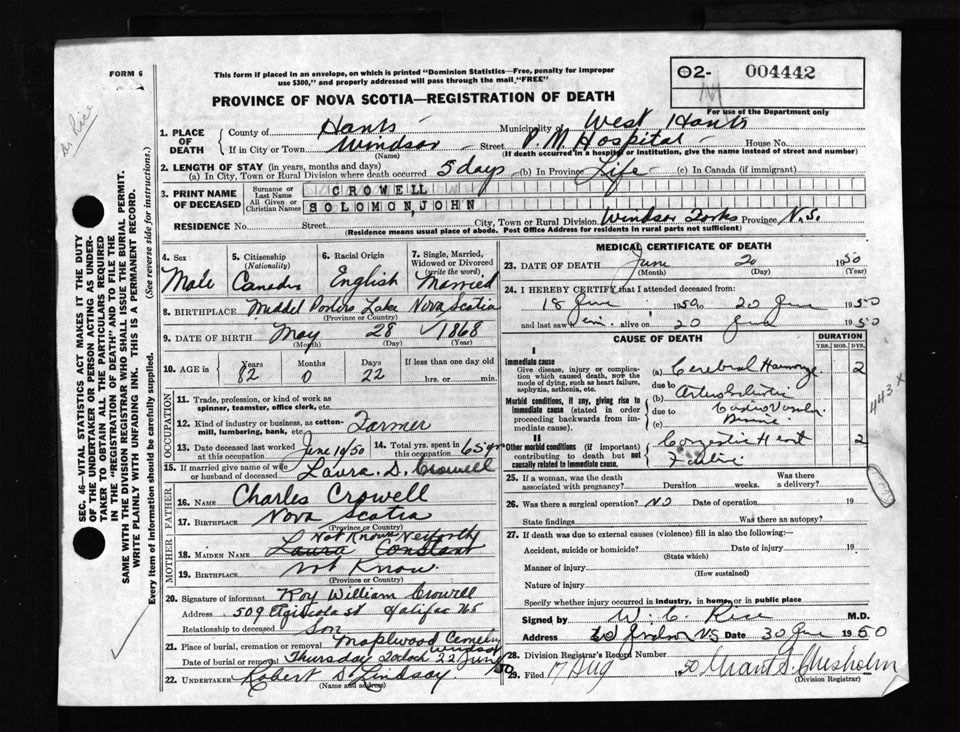 FORM 6
This form if placed in an envelope, on which is printed "Dominion Statistics—Free, penalty for improper
use $300," and properly addressed will pass through the mail "FREE"
O2- 004442
For use of the Department only
PROVINCE OF NOVA SCOTIA—REGISTRATION OF DEATH
1. PLACE OF DEATH
County of Hants Municipality of West Hants
If in City or Town Windsor Street P.M. Hospital House No.
(Name) (If death occurred in a hospital or institution, give the name instead of street and number)
2. LENGTH OF STAY (in years, months and days)
(a) In City, Town or Rural Division where death occurred 5 days (b) In Province Life (c) In Canada (if immigrant)
3. PRINT NAME OF DECEASED
Surname or Last Name CROWELL
All Given or Christian Names SOLOMON, JOHN
RESIDENCE No. Street City, Town or Rural Division Windsor Forks Province N.S.
(Residence means usual place of abode. Post Office Address for residents in rural parts not sufficient)
4. Sex Male
5. Citizenship (Nationality) Canada
6. Racial Origin English
7. Single, Married, Widowed or Divorced (write the word) Married
8. BIRTHPLACE Middel Porters Lake Nova Scotia
(Province or Country)
9. DATE OF BIRTH May 28 1868
(Month) (Day) (Year)
10. AGE in Years 82 Months 0 Days 22 If less than one day old
hrs. or min.
OCCUPATION
11. Trade, profession, or kind of work as
spinner, teamster, office clerk, etc.
12. Kind of industry or business, as cotton-
mill, lumbering, bank, etc. Farmer
13. Date deceased last worked at this occupation June 10/50
14. Total yrs. spent in this occupation 65 yr
15. If married give name of wife
or husband of deceased Laura D. Crowell
FATHER
16. NAME Charles Crowell
17. BIRTHPLACE Nova Scotia
(Province or Country)
MOTHER
Not Know
18. MAIDEN NAME Laura Constant
19. BIRTHPLACE not Know
(Province or Country)
20. Signature of informant Roy William Crowell
Address 509 Agricola st Halifax NS
Relationship to deceased Son
21. Place of burial, cremation or removal Maplewood Cemetry Windsor
Date of burial or removal Thursday 2 oclock 22 June 50
22. UNDERTAKER Robert D Lindsay
(Name and address)
MEDICAL CERTIFICATE OF DEATH
23. DATE OF DEATH June 20 1950
(Month) (Day) (Year)
24. I HEREBY CERTIFY that I attended deceased from:
18 June 1950 to 20 June 1950
and last saw him alive on 20 June 1950
CAUSE OF DEATH
DURATION
YRS. MOS. DYS.
I
Immediate cause
Give disease, injury or complication which caused death, NOT the mode of dying, such as heart failure, asphyxia, asthenia, etc.
(a) Cerebral 2
due to
Morbid conditions, if any, giving rise to immediate cause (stated in order proceeding backwards from immediate cause).
(b)
due to
(c)
II
Other morbid conditions (if important) contributing to death but not causally related to immediate cause.
Congestive Heart 2
443 x
25. If a woman, was the death
associated with pregnancy? Duration weeks. Was there a delivery?
26. Was there a surgical operation? NO Date of operation 19
State findings Was there an autopsy?
27. If death was due to external causes (violence) fill in also the following:—
Accident, suicide or homicide? Date of injury 19
(State which)
Manner of injury
(How sustained)
Nature of injury
Specify whether injury occurred in industry, in home, or in public place
Signed by W. C. Rice M.D.
Address Windsor NS Date 30 June 1950
28. Division Registrar's Record Number
29. Filed 17 Aug 50 Grant S. Chisholm
(Division Registrar)
SEC. 46—VITAL STATISTICS ACT MAKES IT THE DUTY
OF THE UNDERTAKER OR PERSON ACTING AS UNDER-
TAKER TO OBTAIN ALL THE PARTICULARS REQUIRED
IN THE "REGISTRATION OF DEATH" AND TO FILE THE
SAME WITH THE DIVISION REGISTRAR WHO SHALL ISSUE THE BURIAL PERMIT.
WRITE PLAINLY WITH UNFADING INK. THIS IS A PERMANENT RECORD.
Every item of information should be carefully supplied. (See reverse side for instructions.)
Dr. Rice